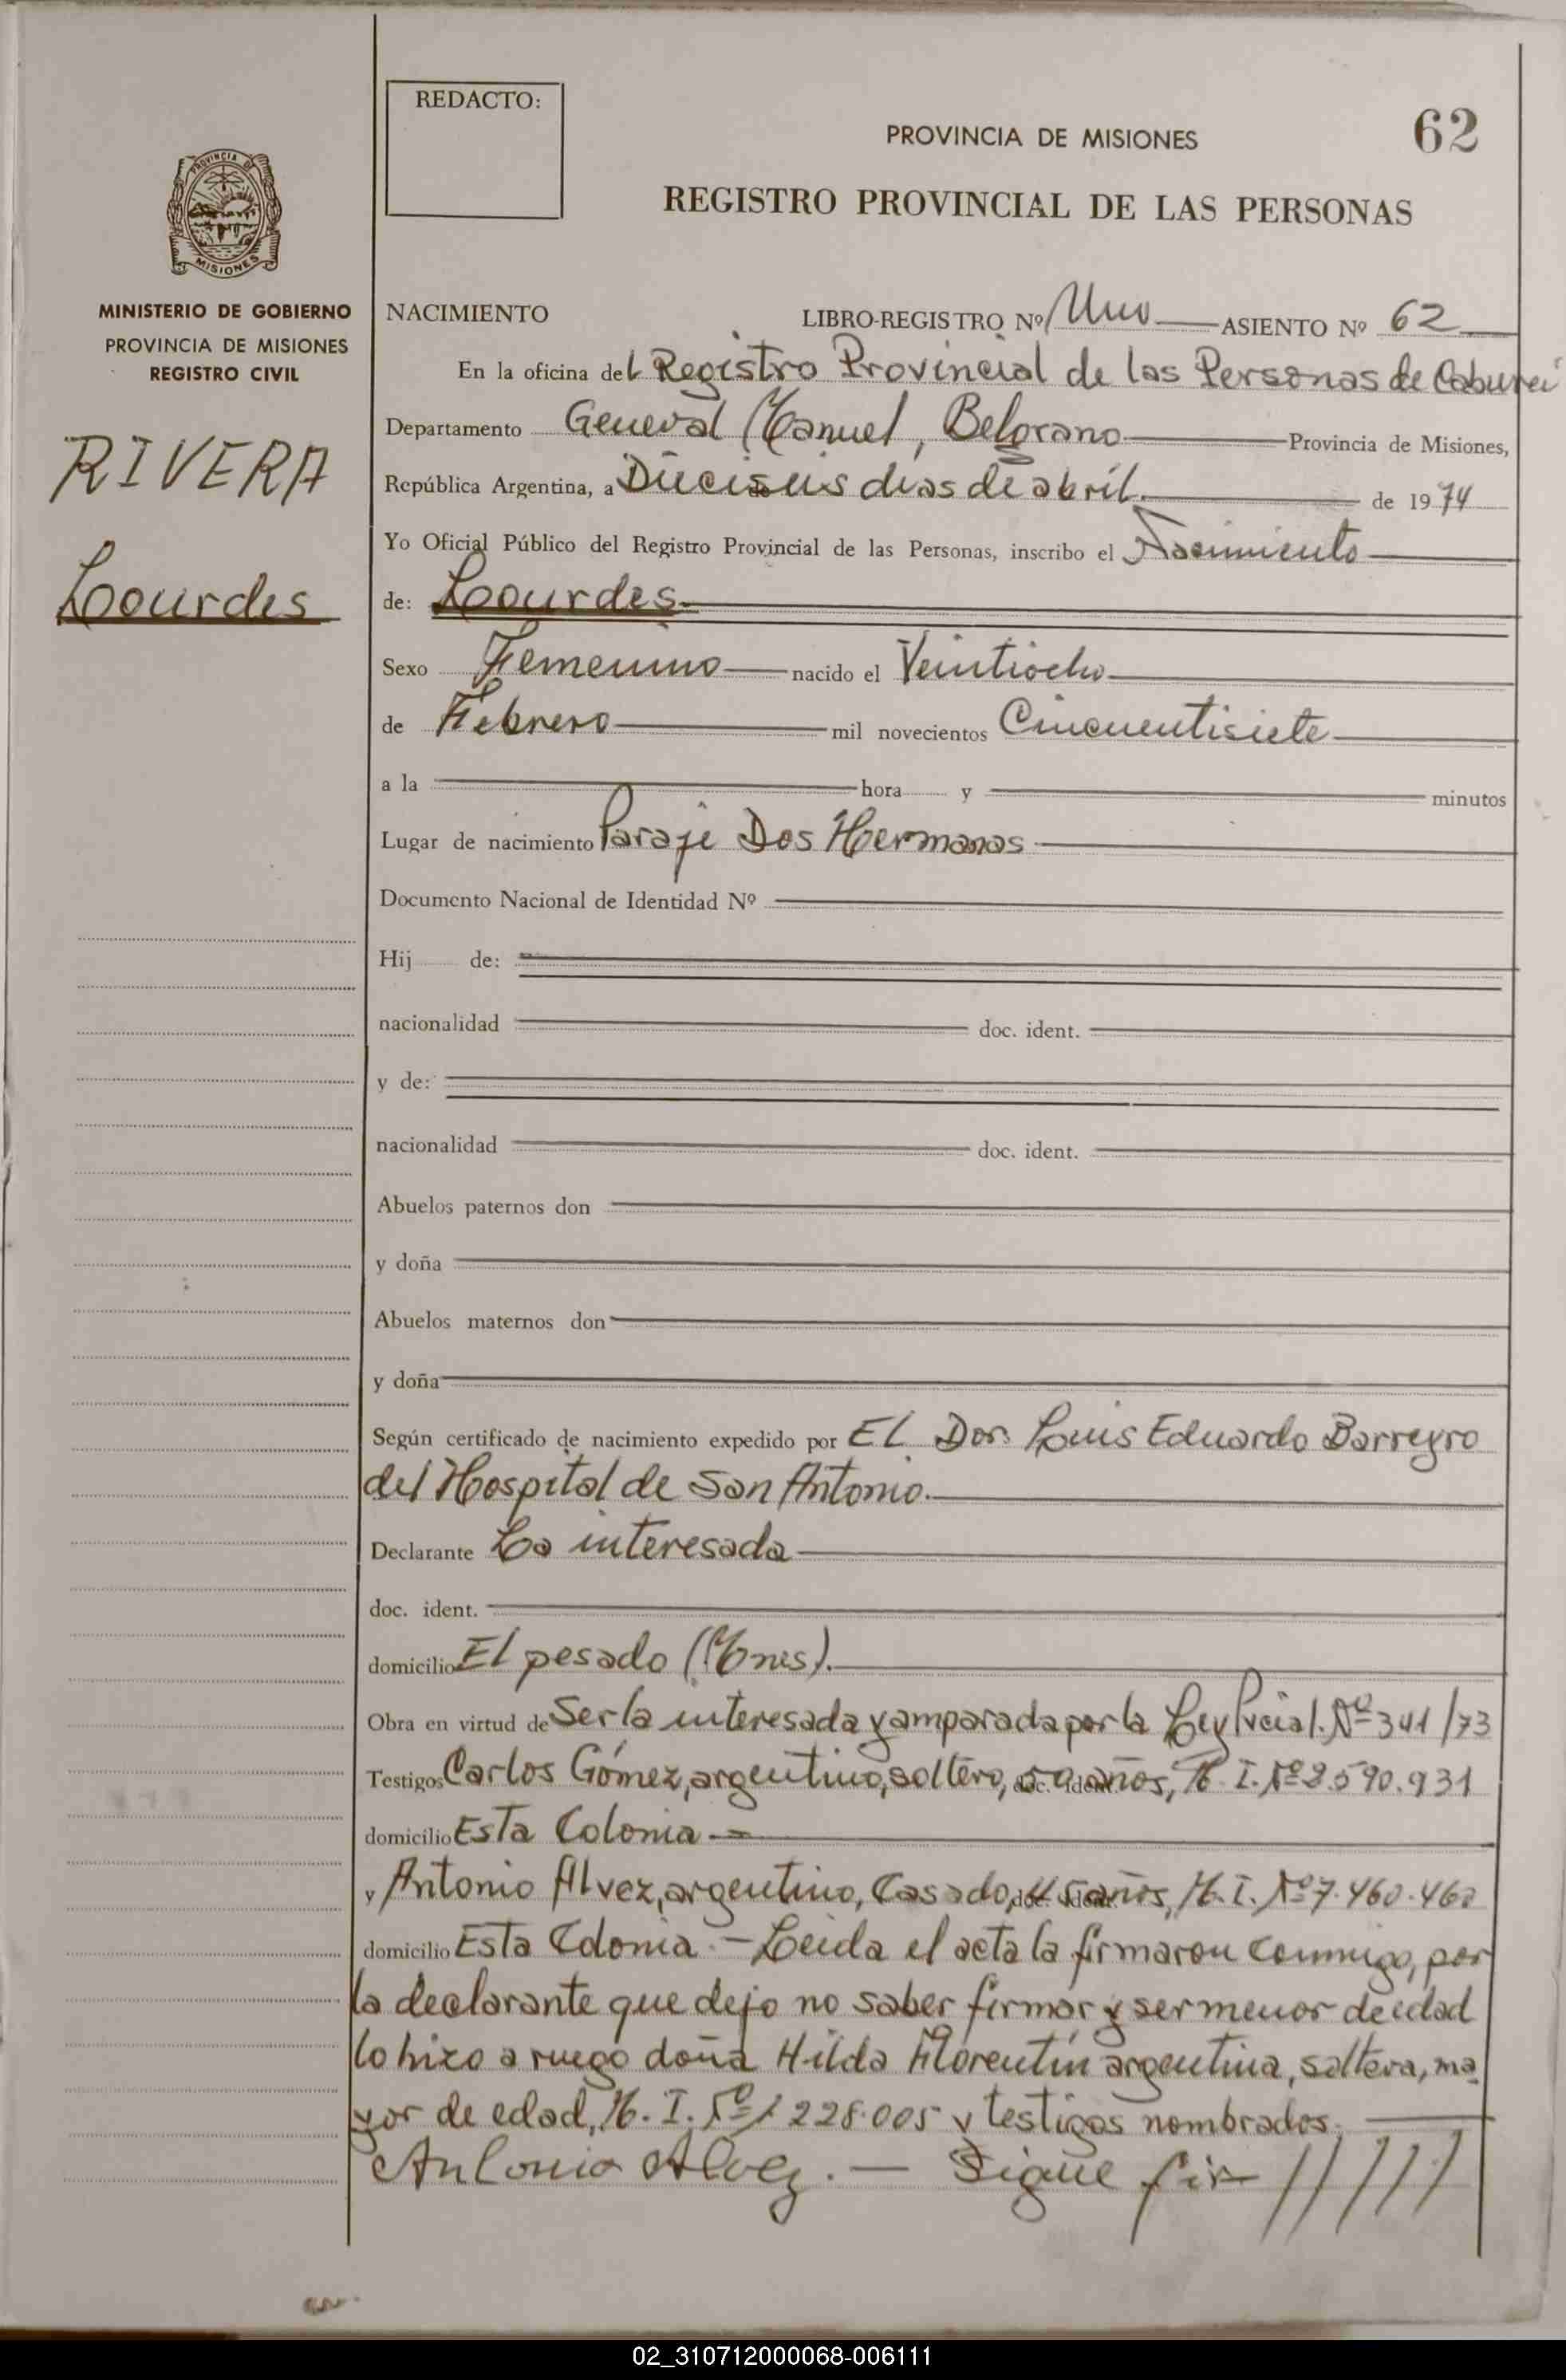 REDACTO:
PROVINCIA DE MISIONES
62
REGISTRO PROVINCIAL DE LAS PERSONAS
PROVINCIA DE
MISIONES
MINISTERIO DE GOBIERNO
PROVINCIA DE MISIONES
REGISTRO CIVIL
RIVERA
Lourdes
NACIMIENTO LIBRO-REGISTRO Nº Uno ASIENTO Nº 62
En la oficina del Registro Provincial de las Personas de Caburei
Departamento General Manuel, Belgrano Provincia de Misiones,
República Argentina, a Dieciseis dias de abril. de 1974
Yo Oficial Público del Registro Provincial de las Personas, inscribo el Nacimiento
de: Lourdes
Sexo Femenino nacido el Veintiocho
de Febrero mil novecientos Cincuentisiete
a la hora y minutos
Lugar de nacimiento Paraje Dos Hermanas
Documento Nacional de Identidad Nº
Hij de:
nacionalidad doc. ident.
y de:
nacionalidad doc. ident.
Abuelos paternos don
y doña
Abuelos maternos don
y doña
Según certificado de nacimiento expedido por El Dor. Luis Eduardo Barreyro
del Hospital de San Antonio.
Declarante La interesada
doc. ident.
domicilio El pesado (Mnes).
Obra en virtud de Ser la interesada y amparada por la Ley Pvcial. Nº 341/73
Testigos Carlos Gómez, argentino, soltero, 50 años, M. I. Nº 2.590.931
domicilio Esta Colonia
y Antonio Alvez, argentino, Casado, años, M. I. Nº 7.460.460
domicilio Esta Colonia. - Leida el acta la firmaron conmigo, por
la declarante que dejo no saber firmar y ser menor de edad
lo hizo a ruego doña Hilda Florentín argentina, soltera, ma
yor de edad, M. I. Nº 1 228.005 y testigos nombrados.
Antonio Alvez. — Sigue fir /////
02_310712000068-006111